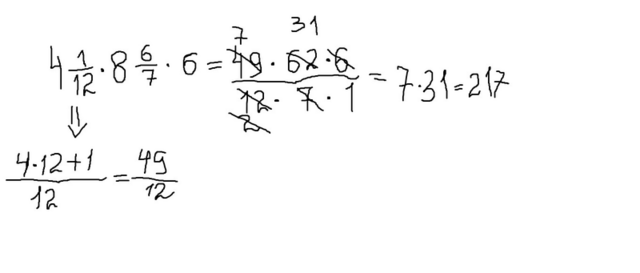 7 31
4 1/12 · 8 6/7 · 6 = 49 · 62 · 6 / 12 · 7 · 1 = 7 · 31 = 217
2
⇓
4·12+1 / 12 = 49 / 12